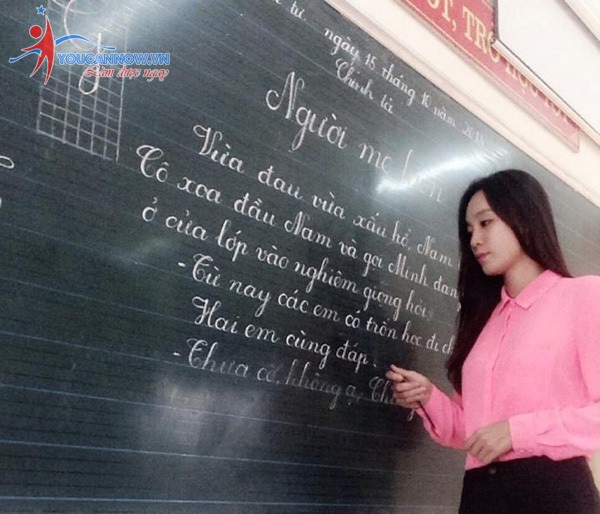 YOUCANNOW.VN
Làm được ngay
ngày 15 tháng 10 năm
Chính tả
Người mẹ hiền
Vừa đau vừa xấu hổ, Nam
Cô xoa đầu Nam và gọi Minh đang
ở cửa lớp vào nghiêm giọng hỏi:
- Từ nay các em có trốn học đi ch
Hai em cùng đáp:
- Thưa cô, không ạ. Ch